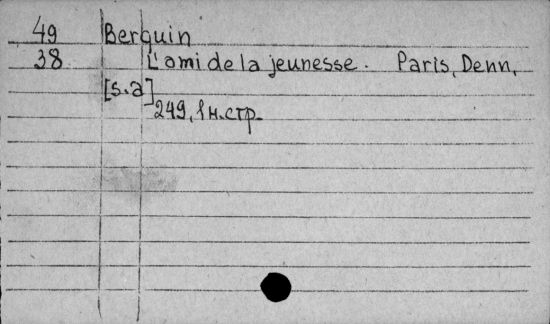 49 Berquin
38 L'ami de la jeunesse. Paris, Denn,
[s.a]
249, 1 н.стр.